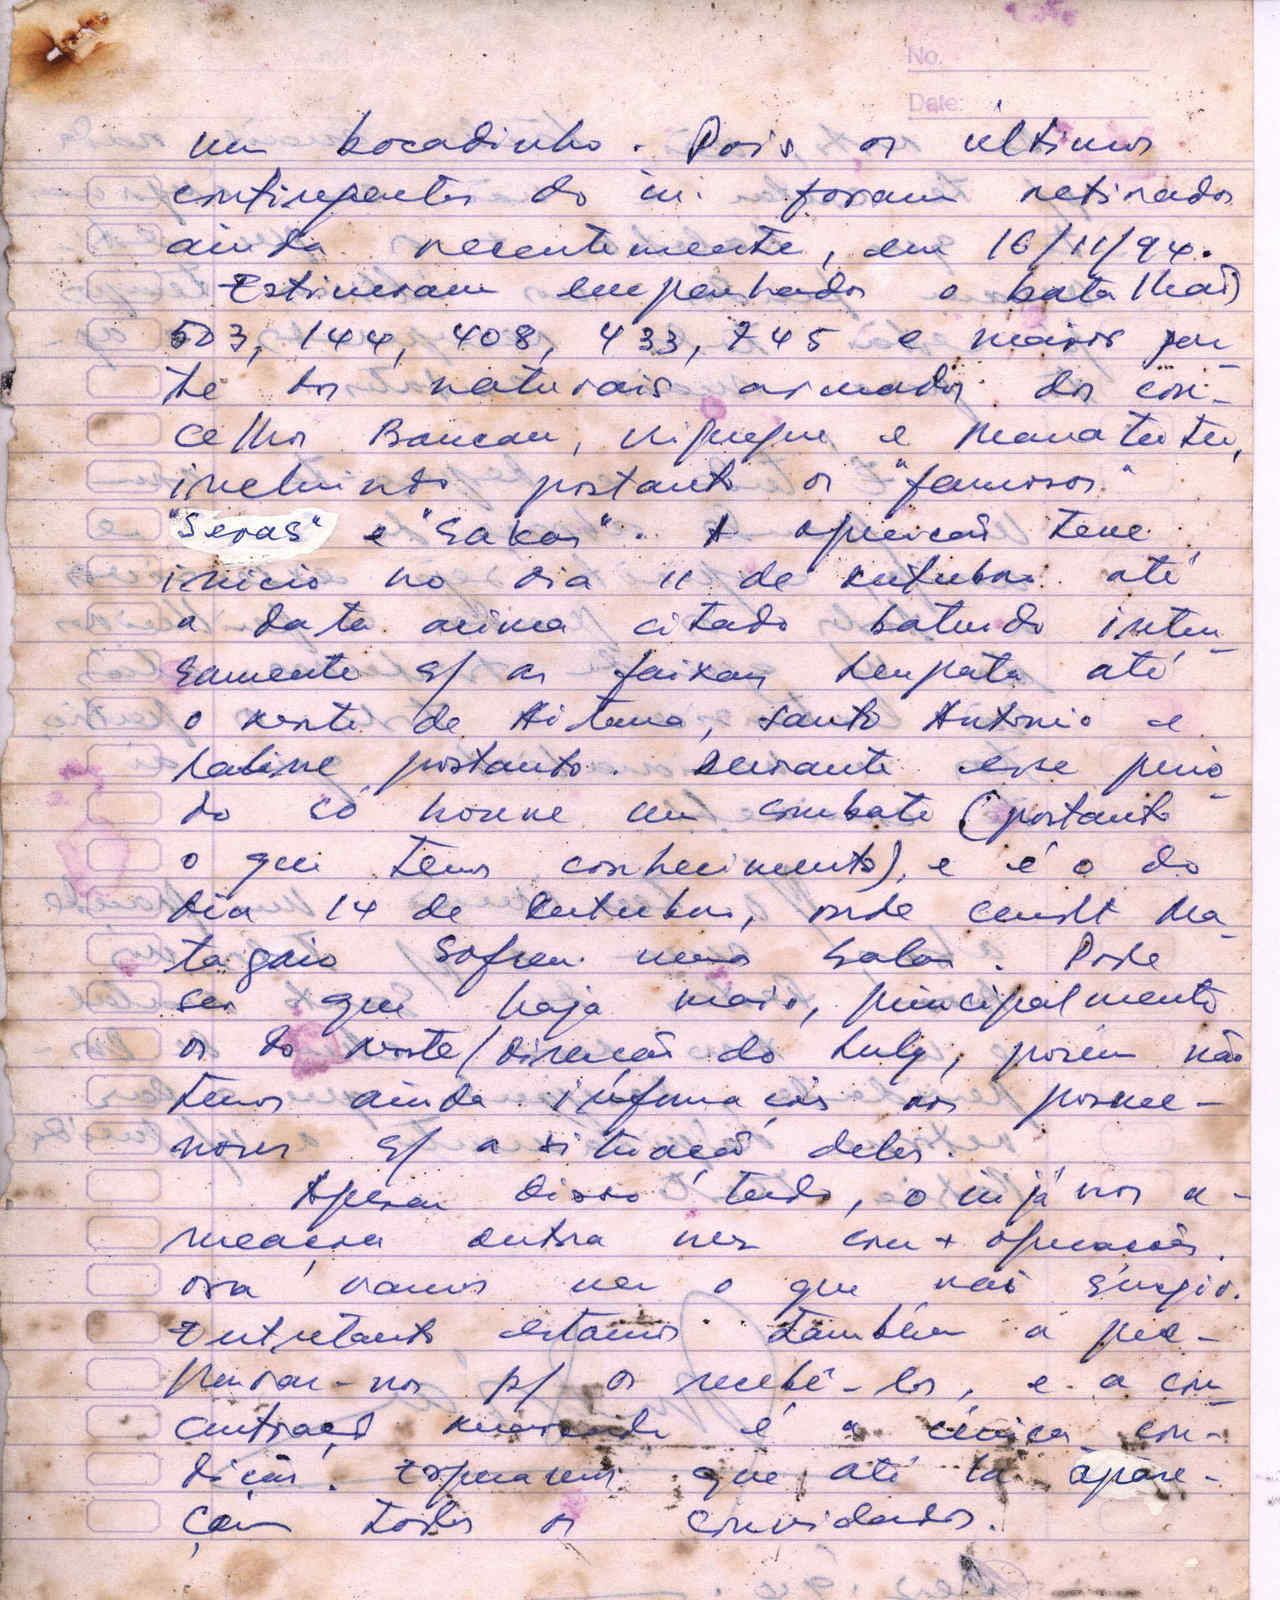 No.
Date:
um bocadinho. Pois os últimos
contingentes do in. foram retirados
ainda recentemente, em 16/11/94.
Estiveram empenhados o batalhão
503, 144, 408, 433, 745 e mais par-
te dos naturais armados dos con-
celhos Baucau, Viqueque e Manatutu,
incluindo portanto os "famosos"
"Seras" e "Sakas". A operação teve
início no dia 11 de Outubro até
a data acima citado batendo inten-
samente s/ as faixas até
o norte de Aitana, Santo António e
portanto. Durante esse perío-
do só houve um combate (portanto
o que temos conhecimento), e é o do
dia 14 de Outubro, onde cmdt Ma-
tagaio sofreu uma
ser que haja mais, principalmente
os do norte/direcção do Lulgs, porém não
temos ainda informações aos porme-
nores s/ a situação deles.
Apesar disso tudo, o in já nos a-
meaçou outra vez com + operações.
Ora vamos ver o que vai surgir.
Entretanto estamos também a pre-
parar-nos p/ os recebê-los, e a con-
centração é a única con-
dição. Esperamos que até lá apare-
çam todos os convidados.